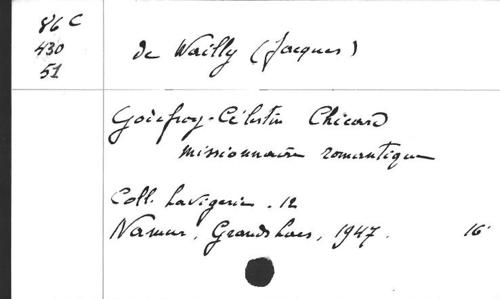 86 C
430
51
de Wailly (Jacques)
Godefroy-Célestin Chicard
missionnaire romantique
Coll. Lavigerie. 12
Namur, Grands Lacs, 1947. 16°